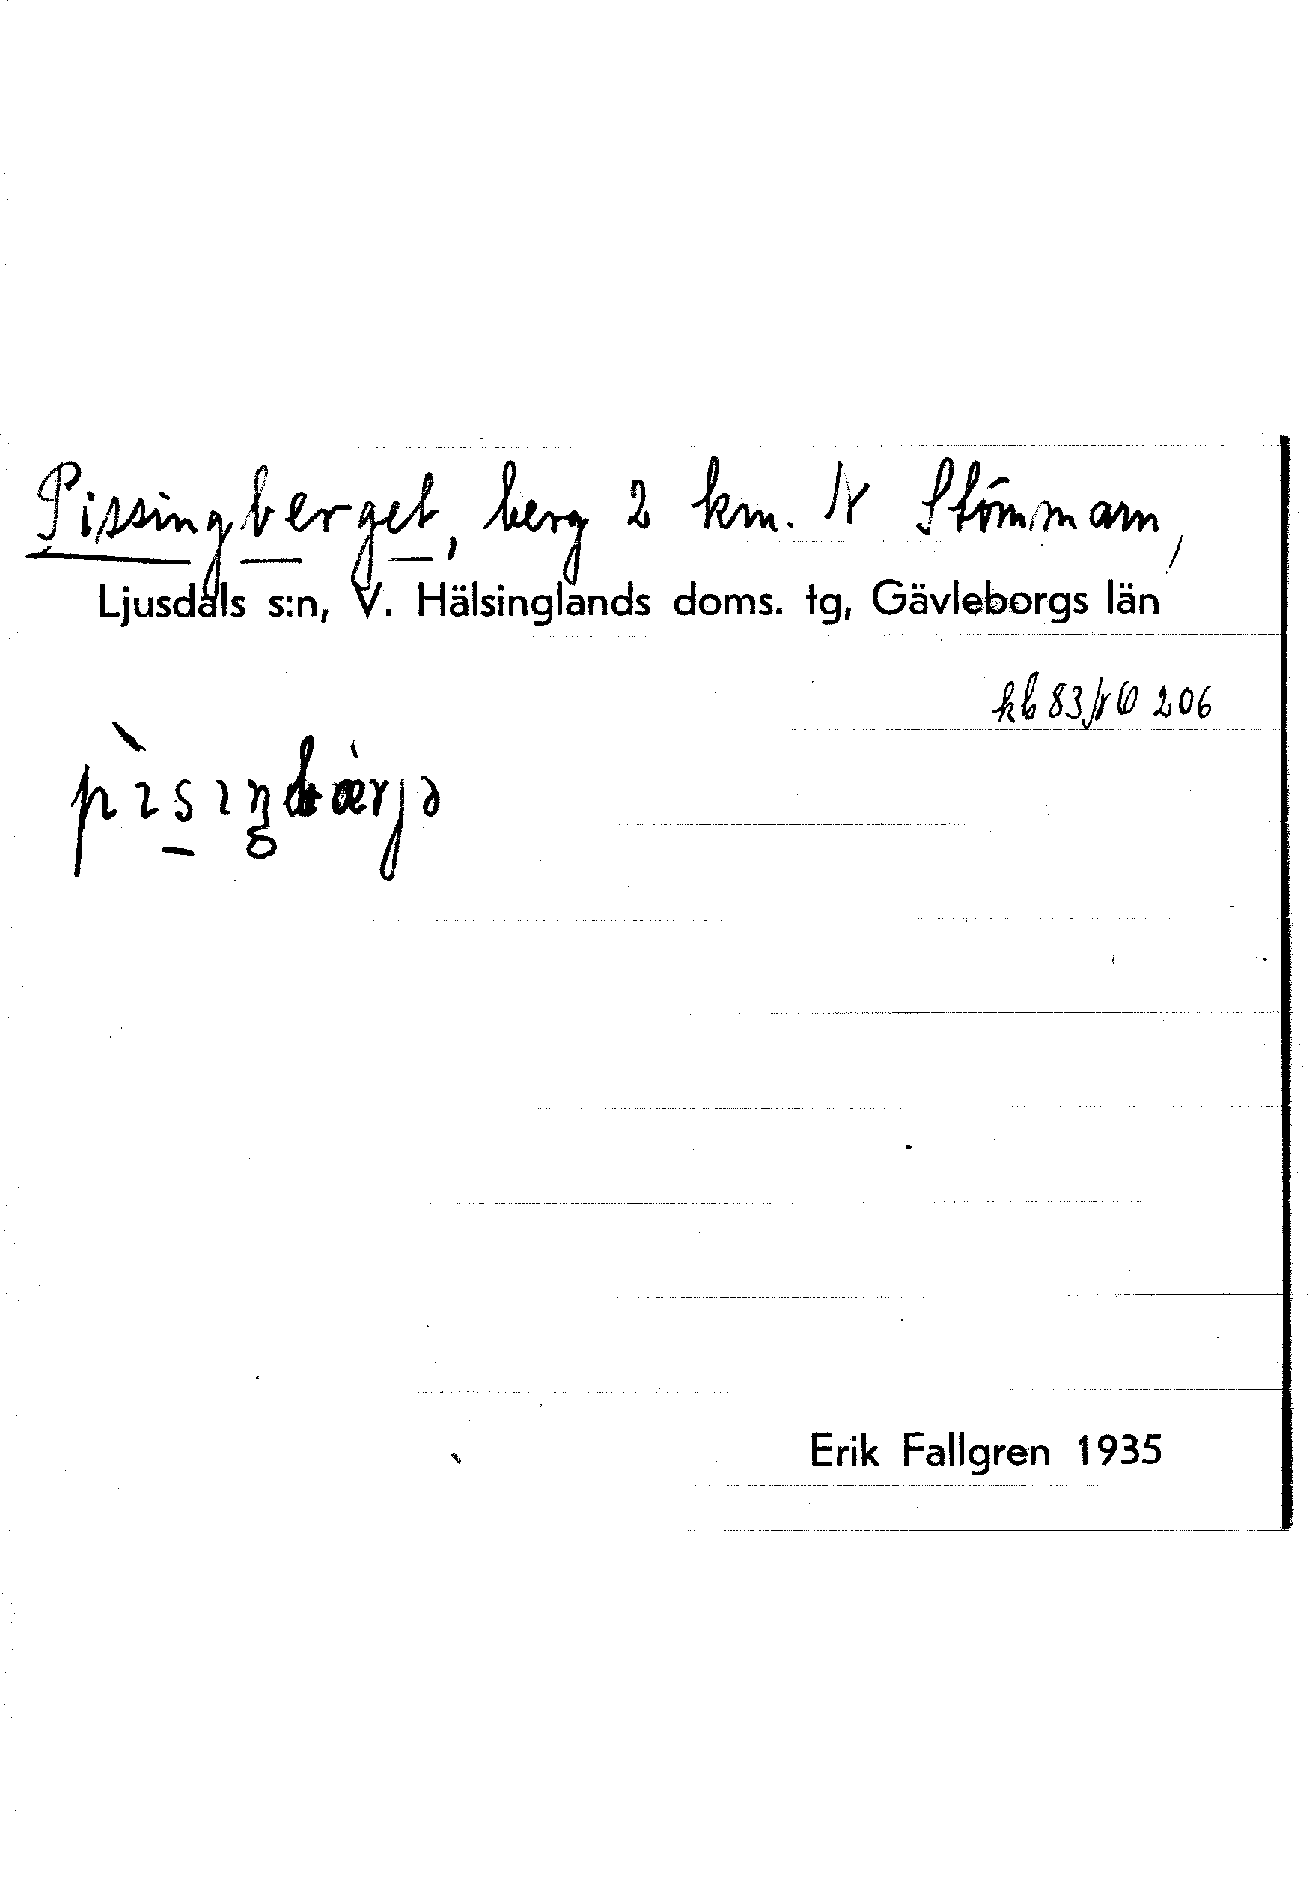 Pissingberget, berg 2 km. N Stömmarn,
Ljusdals s:n, V. Hälsinglands doms. tg, Gävleborgs län
kb 83 NO 206
Erik Fallgren 1935